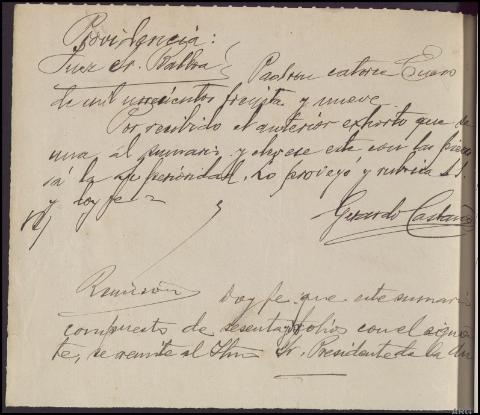 Providencia:
Juez Sr. Balboa } Padron catorce Enero
de mil novecientos treinta y nueve.
Por recibido el anterior exhorto que se
una al sumario y elevese este con la pieza
á la Superioridad. Lo proveyó y rubrica S.S.
y doy fe =
Gerardo Castaño
Remisión Doy fe que este sumario
compuesto de sesenta folios con el siguien
te, se remite al Iltmo Sr. Presidente de la Au